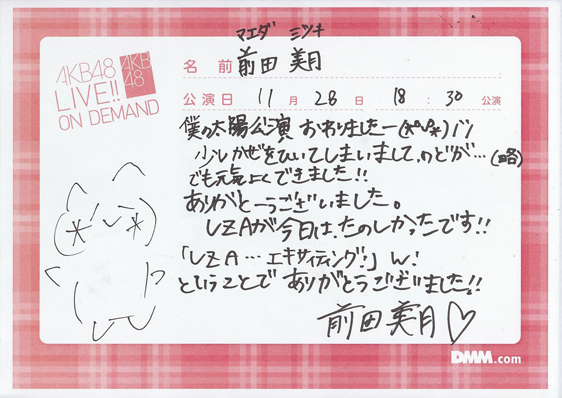 AKB48
LIVE!!
ON DEMAND
AKB
48
マエダ ミツキ
名前 前田 美月
公演日 11月28日 18:30公演
僕の太陽公演 おわりましたー
少しかぜをひいてしまいまして、のどが…(略)
でも元気よくできました!!
ありがとーうございました。
UZAが今日は、たのしかったです!!
「UZA…エキサイティング!」w!
ということで ありがとうございました!!
前田美月♡
DMM.com